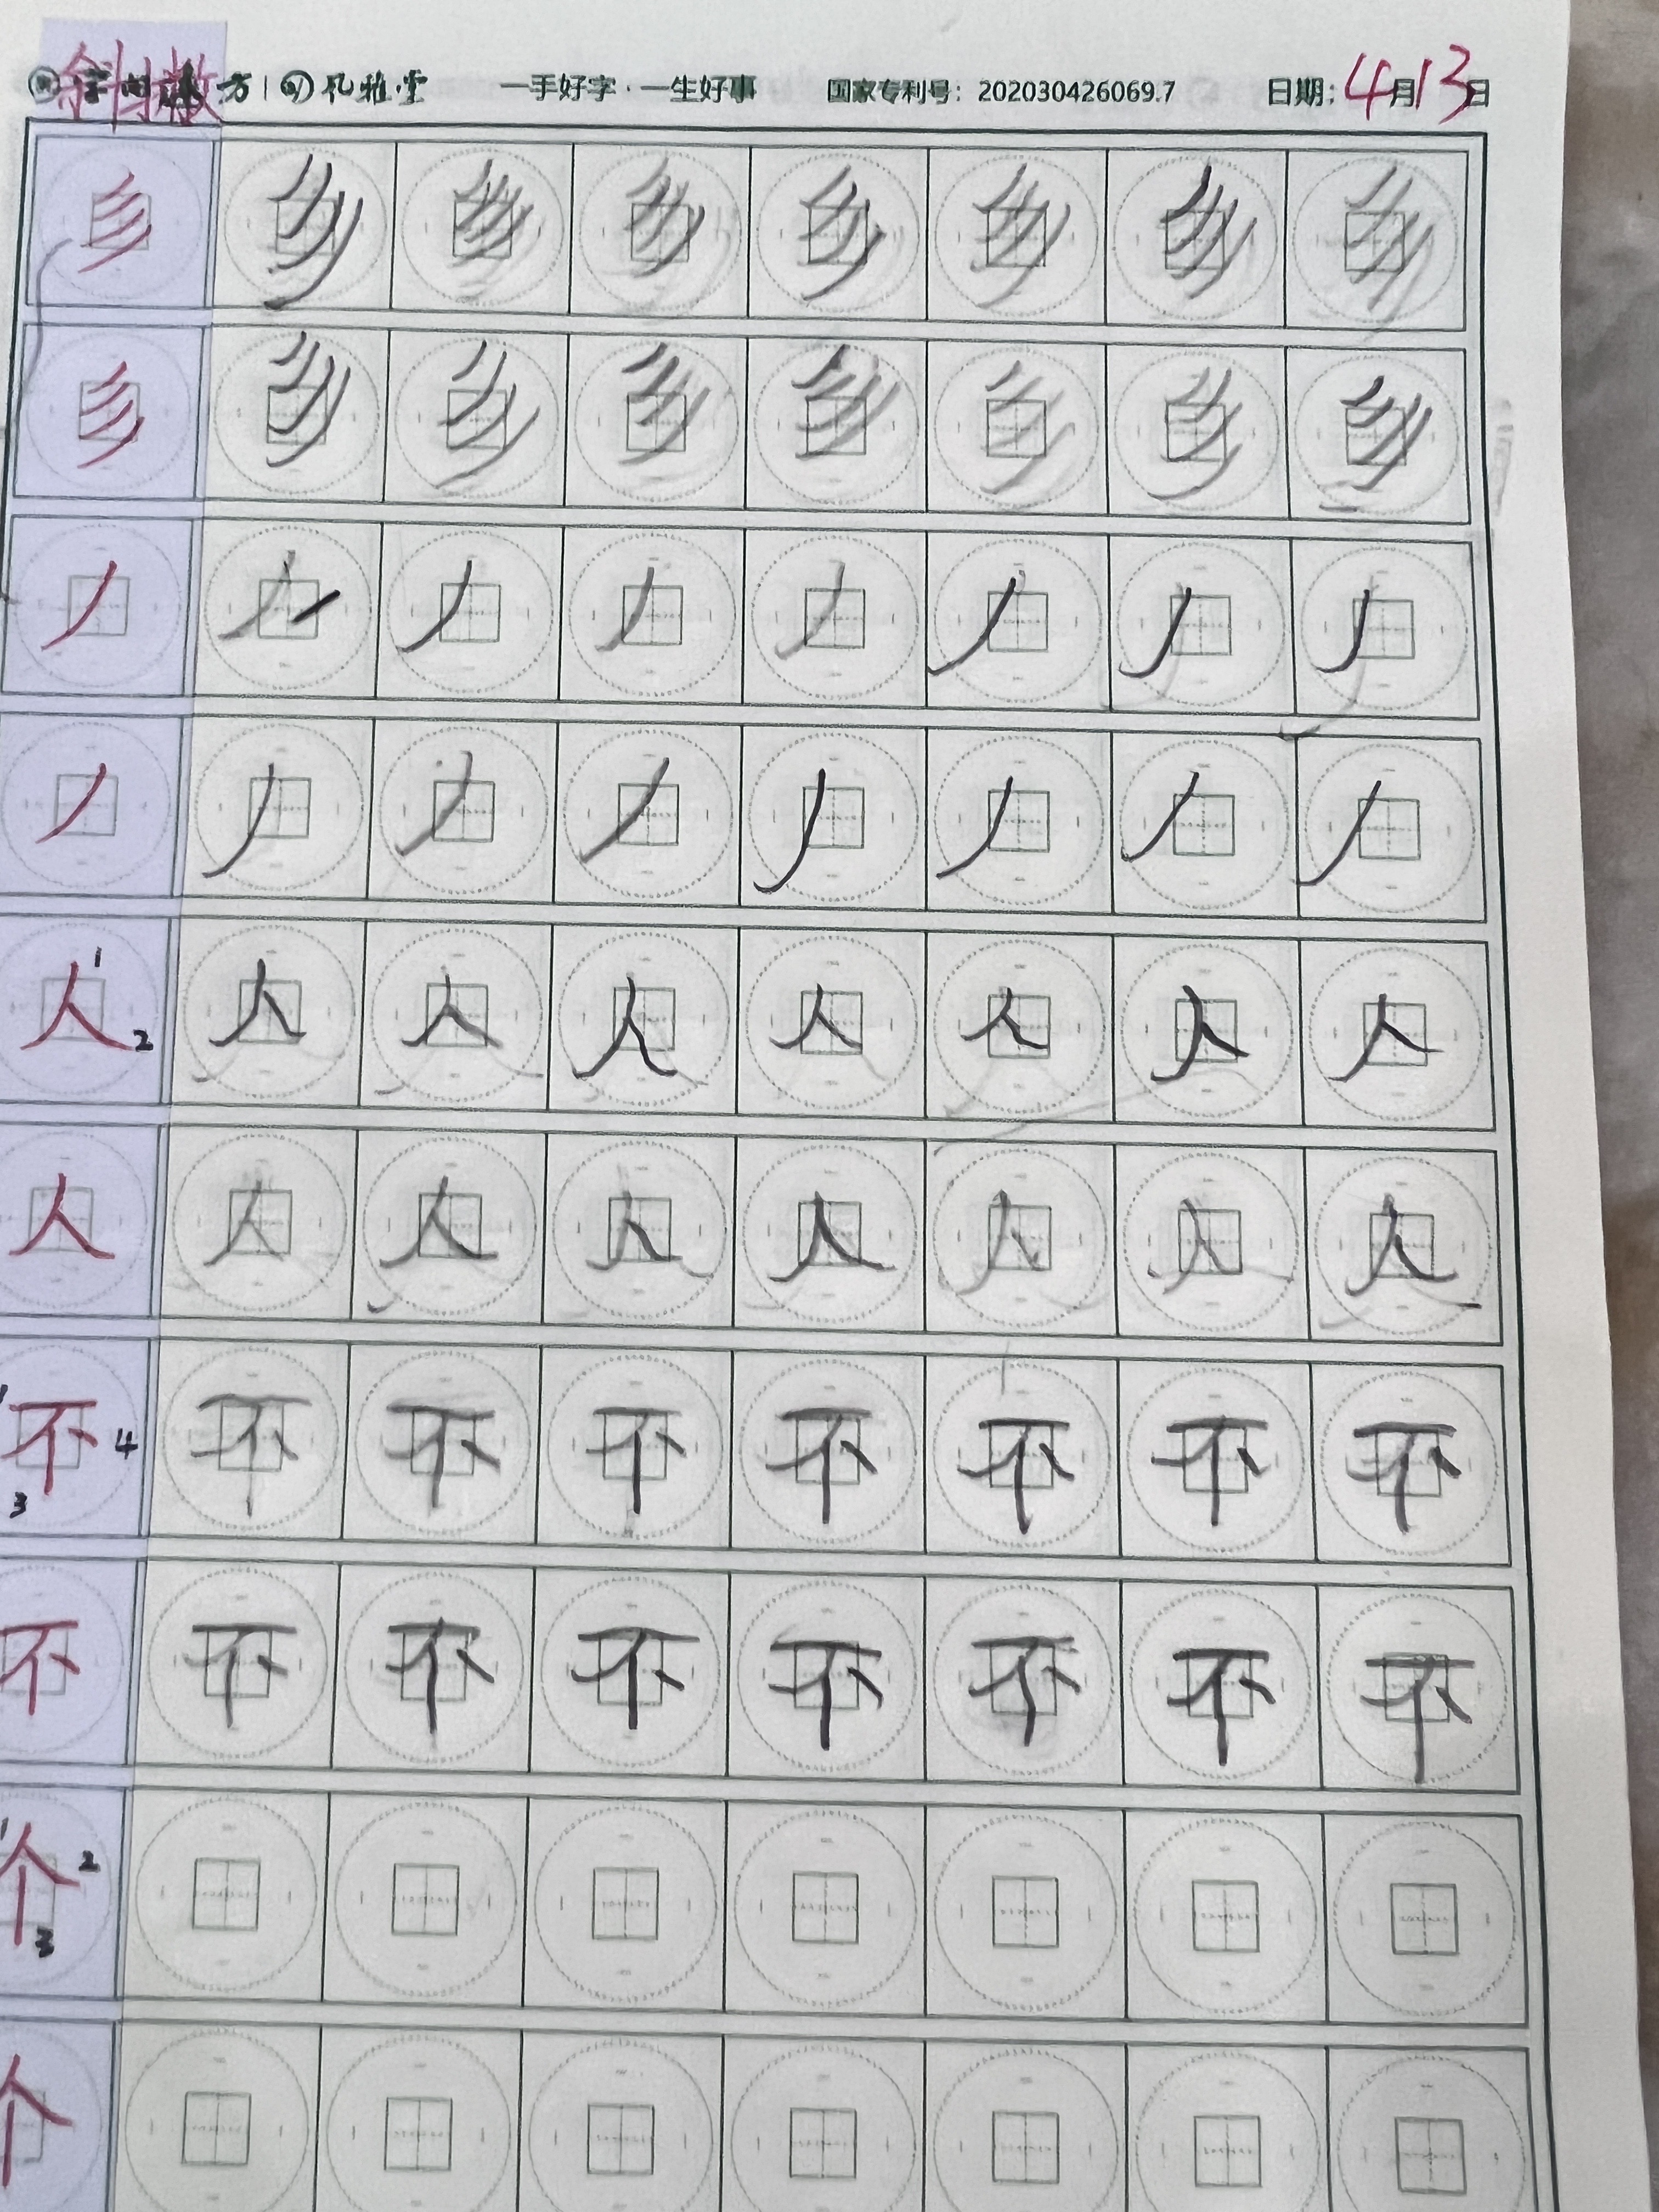 斜撇
孔雅堂 一手好字·一生好事 国家专利号：202030426069.7 日期：4月13日
丿 丿 丿 丿 丿 丿 丿 丿
丿 丿 丿 丿 丿 丿 丿 丿
人 1 2 人 人 人 人 人 人 人
人 人 人 人 人 人 人 人
不 3 4 不 不 不 不 不 不 不
不 不 不 不 不 不 不 不
个 1 2 3
个